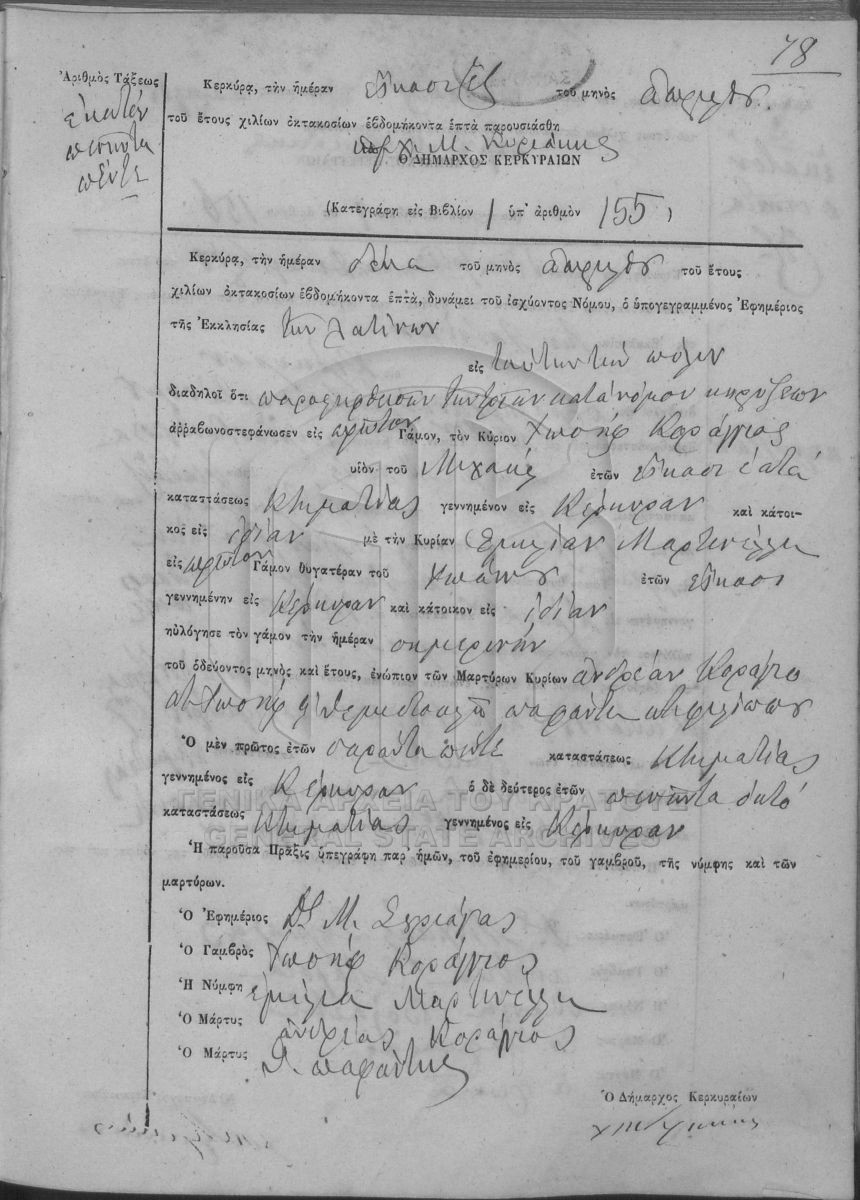 78
Ἀριθμὸς Τάξεως
ἑκατὸν
πενῆντα
πέντε
Κερκύρᾳ, τὴν ἡμέραν εἴκοσι τοῦ μηνὸς Ἀπριλίου
τοῦ ἔτους χιλίων ὀκτακοσίων ἑβδομήκοντα ἑπτὰ παρουσιάσθη
Μ.
Ὁ ΔΗΜΑΡΧΟΣ ΚΕΡΚΥΡΑΙΩΝ
(Κατεγράφη εἰς Βιβλίον 1 ὑπ' ἀριθμὸν 155)
Κερκύρᾳ, τὴν ἡμέραν τοῦ μηνὸς Ἀπριλίου τοῦ ἔτους
χιλίων ὀκτακοσίων ἑβδομήκοντα ἑπτὰ, δυνάμει τοῦ ἰσχύοντος Νόμου, ὁ ὑπογεγραμμένος Ἐφημέριος
τῆς Ἐκκλησίας τῶν Λατίνων
εἰς ταύτην τὴν πόλιν
διαδηλοῖ ὅτι τῶν τριῶν κατὰ νόμον κηρύξεων
ἀρραβωνοστεφάνωσεν εἰς πρῶτον Γάμον, τὸν Κύριον Ἰωσὴφ Καράγιος
υἱὸν τοῦ Μιχαὴλ ἐτῶν εἴκοσι ἑπτά
καταστάσεως Κτηματίας γεννημένον εἰς Κέρκυραν καὶ κάτοι-
κος εἰς ἰδίαν μὲ τὴν Κυρίαν Ἐμιλίαν Μαρτινέλλη
εἰς πρῶτον Γάμον θυγατέραν τοῦ Ἰωάννου ἐτῶν εἴκοσι
γεννημένην εἰς Κέρκυραν καὶ κάτοικον εἰς ἰδίαν
ηὐλόγησε τὸν γάμον τὴν ἡμέραν σημερινήν
τοῦ ὁδεύοντος μηνὸς καὶ ἔτους, ἐνώπιον τῶν Μαρτύρων Κυρίων Ἀνδρέαν Καράγιο
Φιλίππου
Ὁ μὲν πρῶτος ἐτῶν σαράντα πέντε καταστάσεως Κτηματίας
γεννημένος εἰς Κέρκυραν ὁ δὲ δεύτερος ἐτῶν πενῆντα ὀκτὼ
καταστάσεως Κτηματίας γεννημένος εἰς Κέρκυραν
Ἡ παροῦσα Πρᾶξις ὑπεγράφη παρ' ἡμῶν, τοῦ ἐφημερίου, τοῦ γαμβροῦ, τῆς νύμφης καὶ τῶν
μαρτύρων.
Ὁ Ἐφημέριος Μ.
Ὁ Γαμβρὸς Ἰωσὴφ Καράγιος
Ἡ Νύμφη Ἐμιλία Μαρτινέλλη
Ὁ Μάρτυς Ἀνδρέας Καράγιος
Ὁ Μάρτυς
Ὁ Δήμαρχος Κερκυραίων
ΓΕΝΙΚΑ ΑΡΧΕΙΑ ΤΟΥ ΚΡΑΤΟΥΣ
GENERAL STATE ARCHIVES